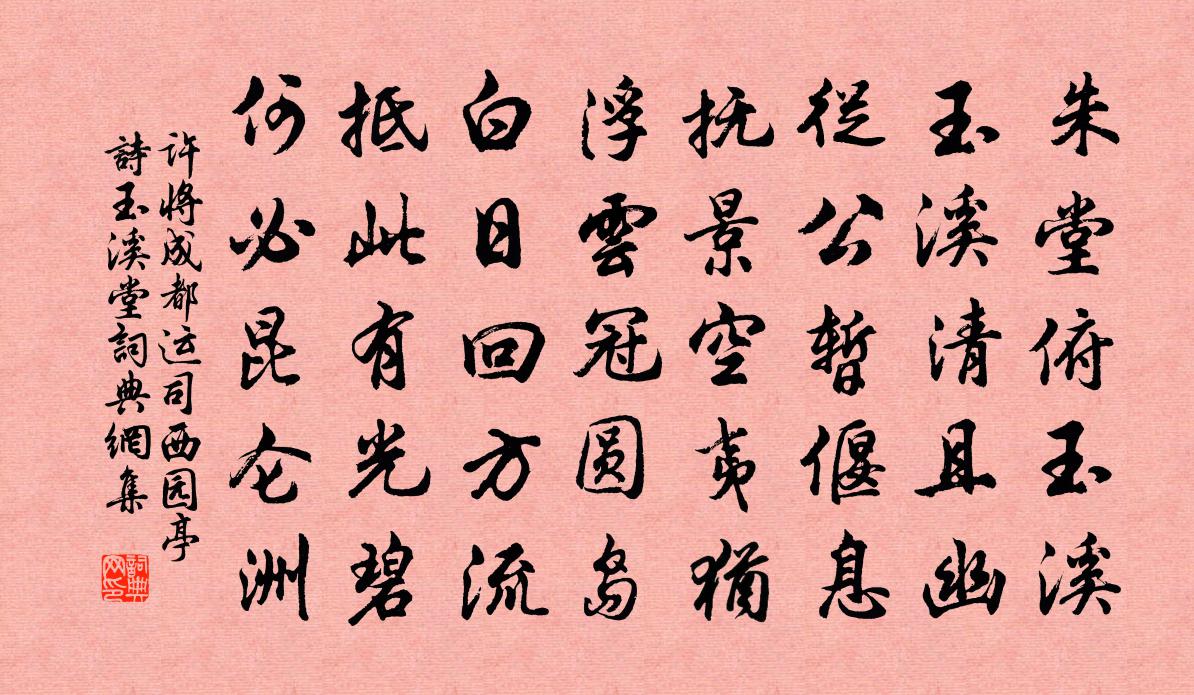 朱堂俯玉溪
玉溪清且幽
從公暫偃息
抚景空夷猶
浮雲冠圆岛
白日回方流
抵此有光碧
何必昆仑洲
许将成都运司西园亭
詩玉溪堂詞典網集
詞典
网印